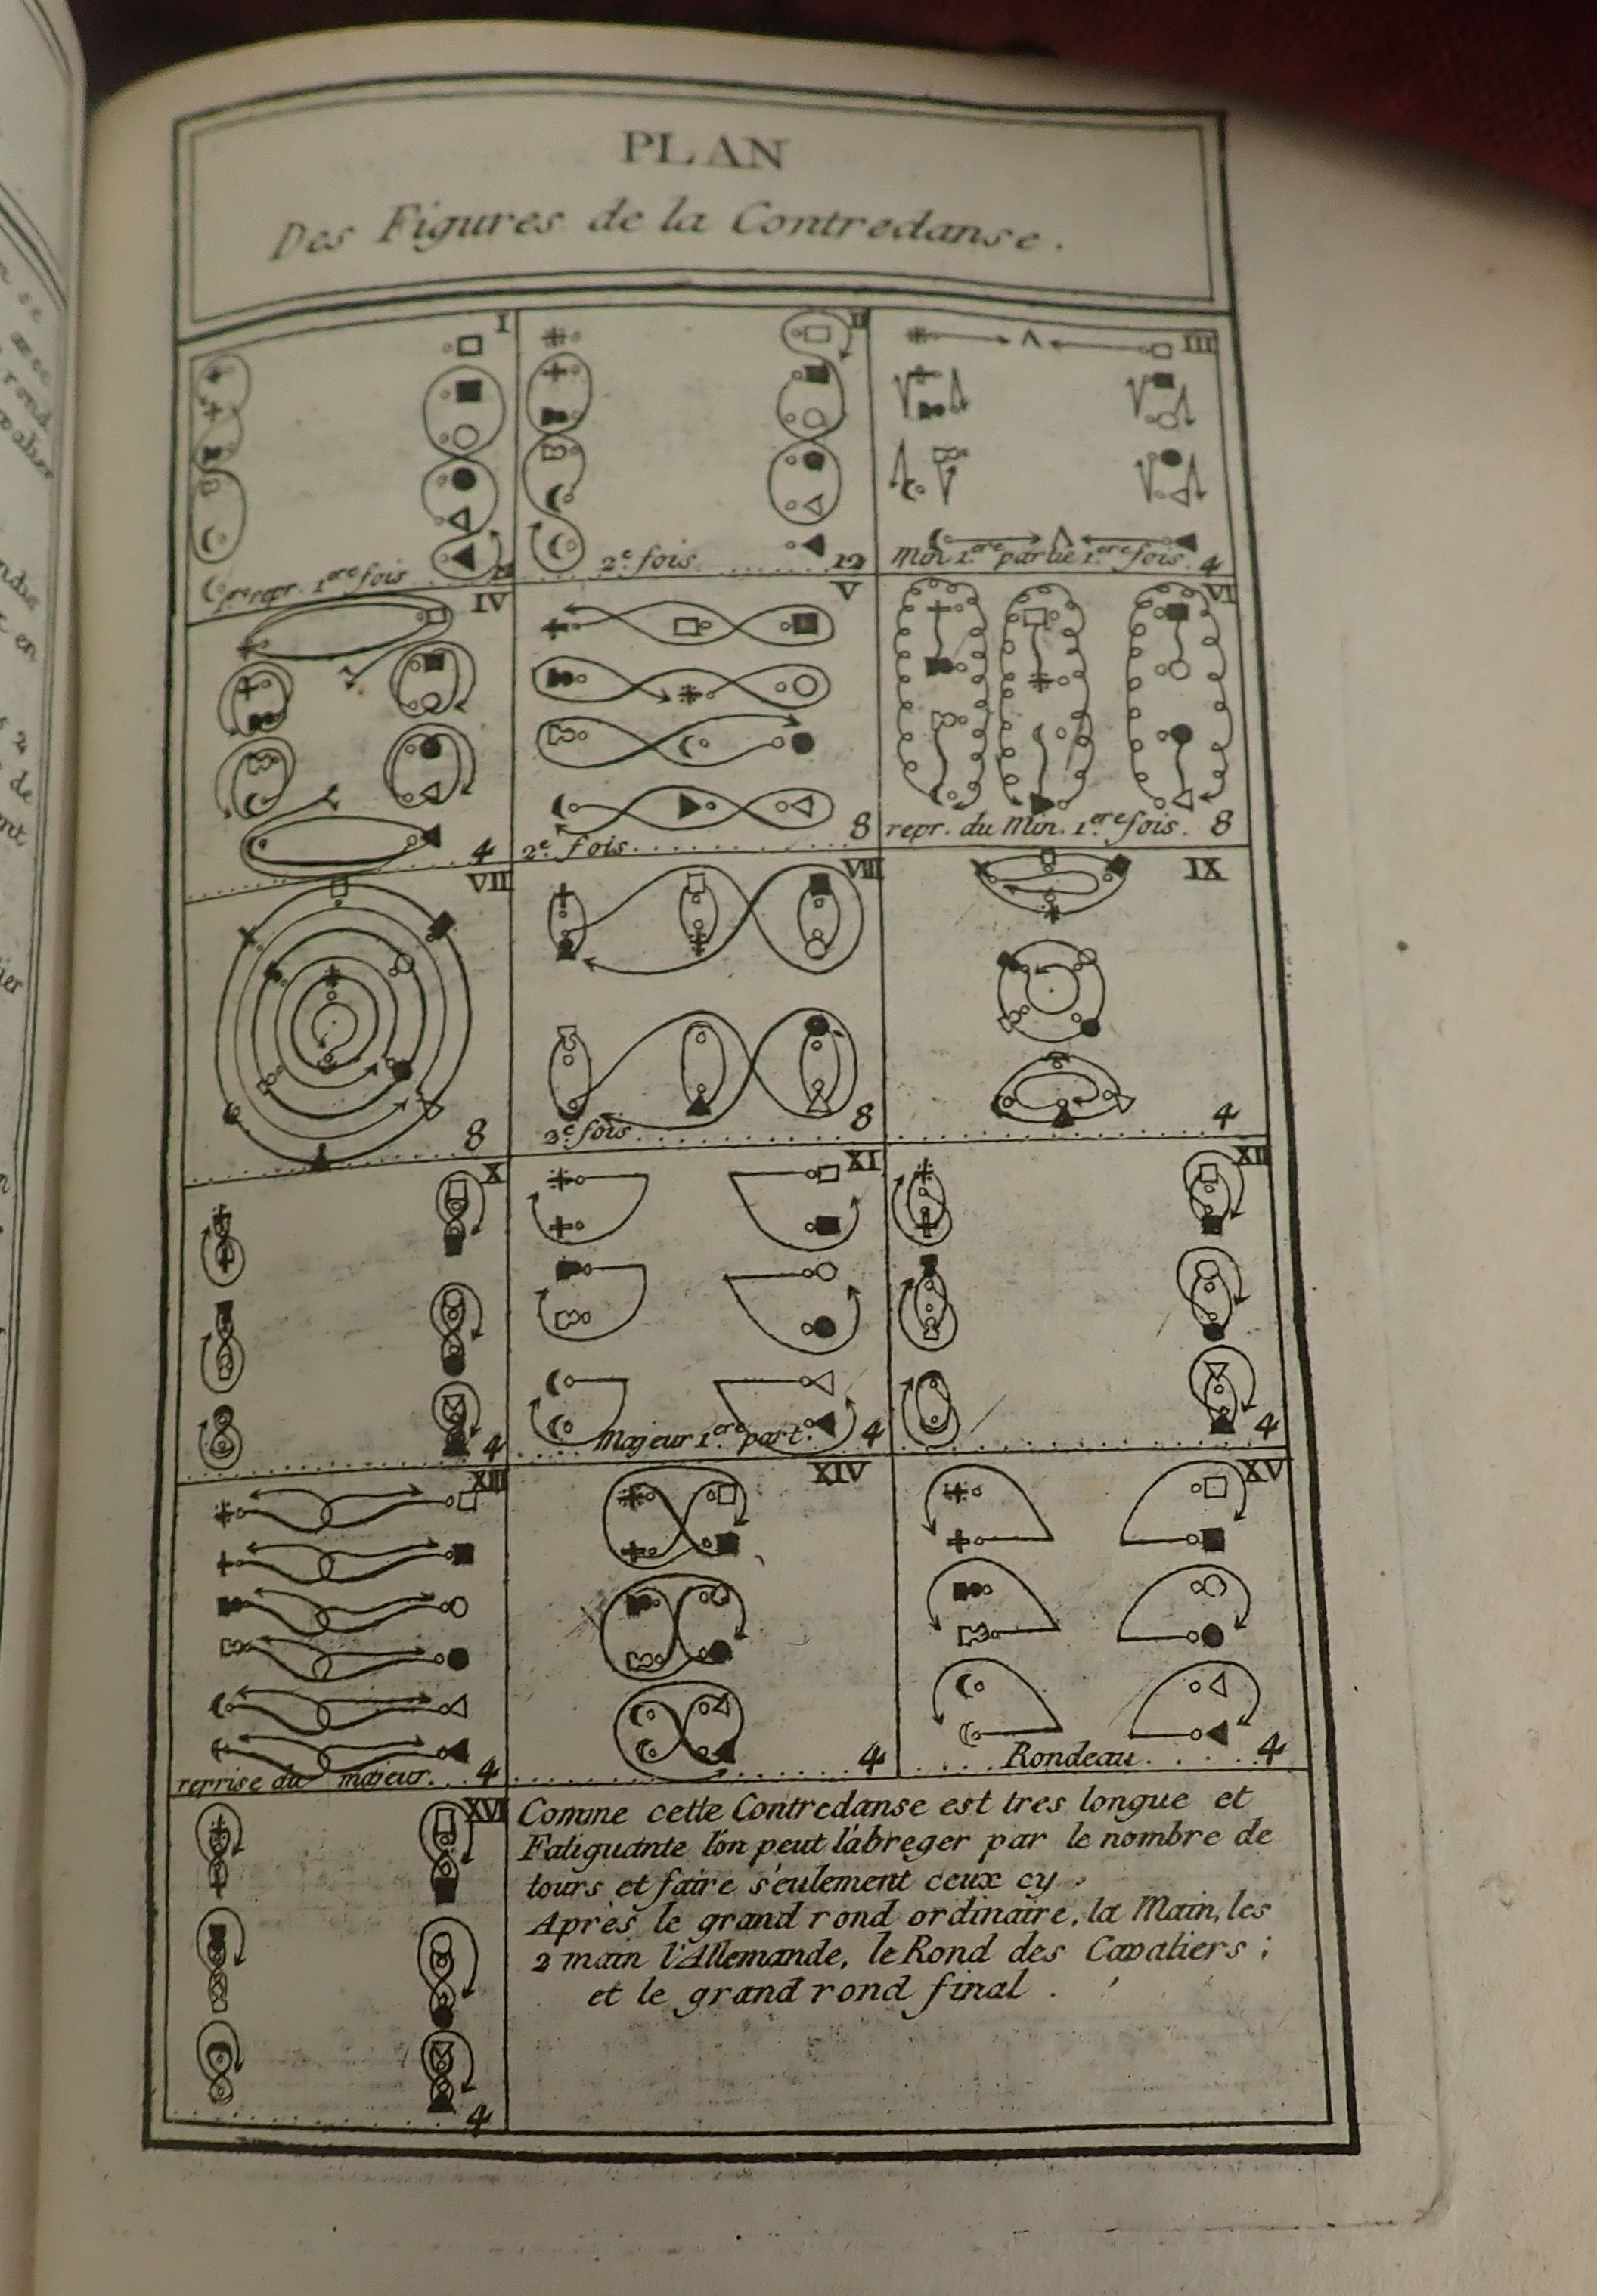 PLAN
Des Figures de la Contredanse.
I
repr. 1.ere fois
II
2.e fois 12
III
1.ere partie 1.ere fois. 4
IV
4
V
2.e fois 8
VI
repr. du Min. 1.ere fois. 8
VII
8
VIII
2.e fois 8
IX
4
X
4
XI
Majeur 1.ere part. 4
XII
4
XIII
reprise du majeur 4
XIV
4
XV
Rondeau 4
XVI
4
Comme cette Contredanse est tres longue et
Fatiguante l'on peut l'abreger par le nombre de
tours et faire s'eulement ceux cy.
Après le grand rond ordinaire, la Main, les
2 main l'Allemande, le Rond des Cavaliers ;
et le grand rond final .